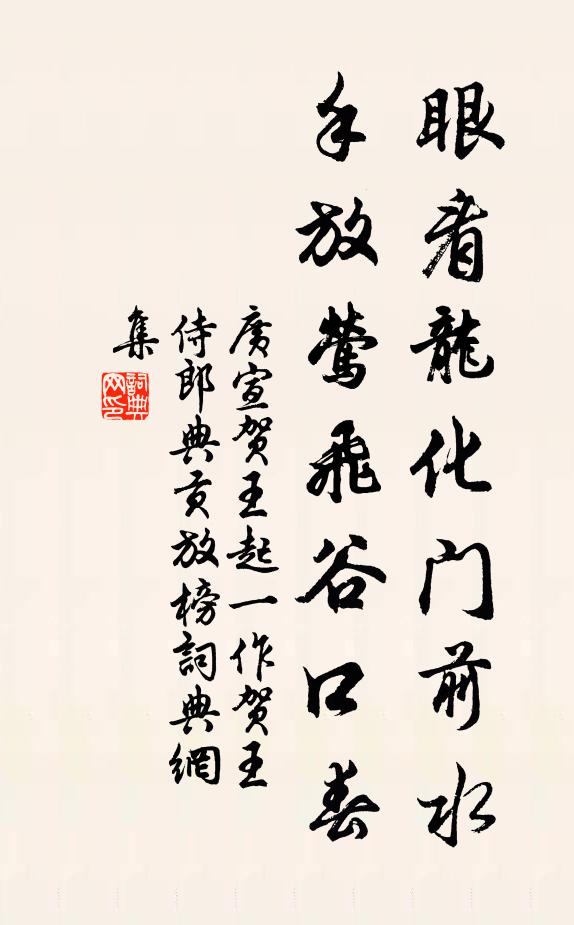 眼看龍化门前水
手放鶯飛谷口春
廣宣賀王起一作賀王
侍郎典貢放榜詞典網
集
詞典
网印